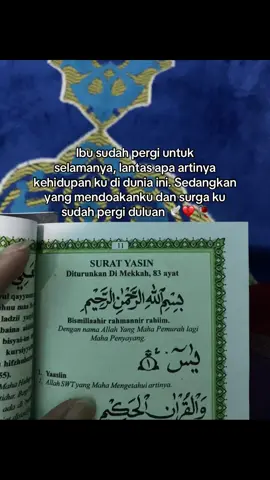 Ibu sudah pergi untuk
selamanya, lantas apa artinya
kehidupan ku di dunia ini. Sedangkan
yang mendoakanku dan surga ku
sudah pergi duluan 🕊️❤️‍🩹🥀
11
SURAT YASIN
Diturunkan Di Mekkah, 83 ayat
بِسْمِ اللهِ الرَّحْمٰنِ الرَّحِيْمِ
Bismillaahir rahmannir rahiim.
Dengan nama Allah Yang Maha Pemurah lagi
Maha Penyayang.
يٰسٓ ۝١
1. Yaasiin
1. Allah SWT yang Maha Mengetahui artinya.
وَالْقُرْاٰنِ الْحَكِيْمِ